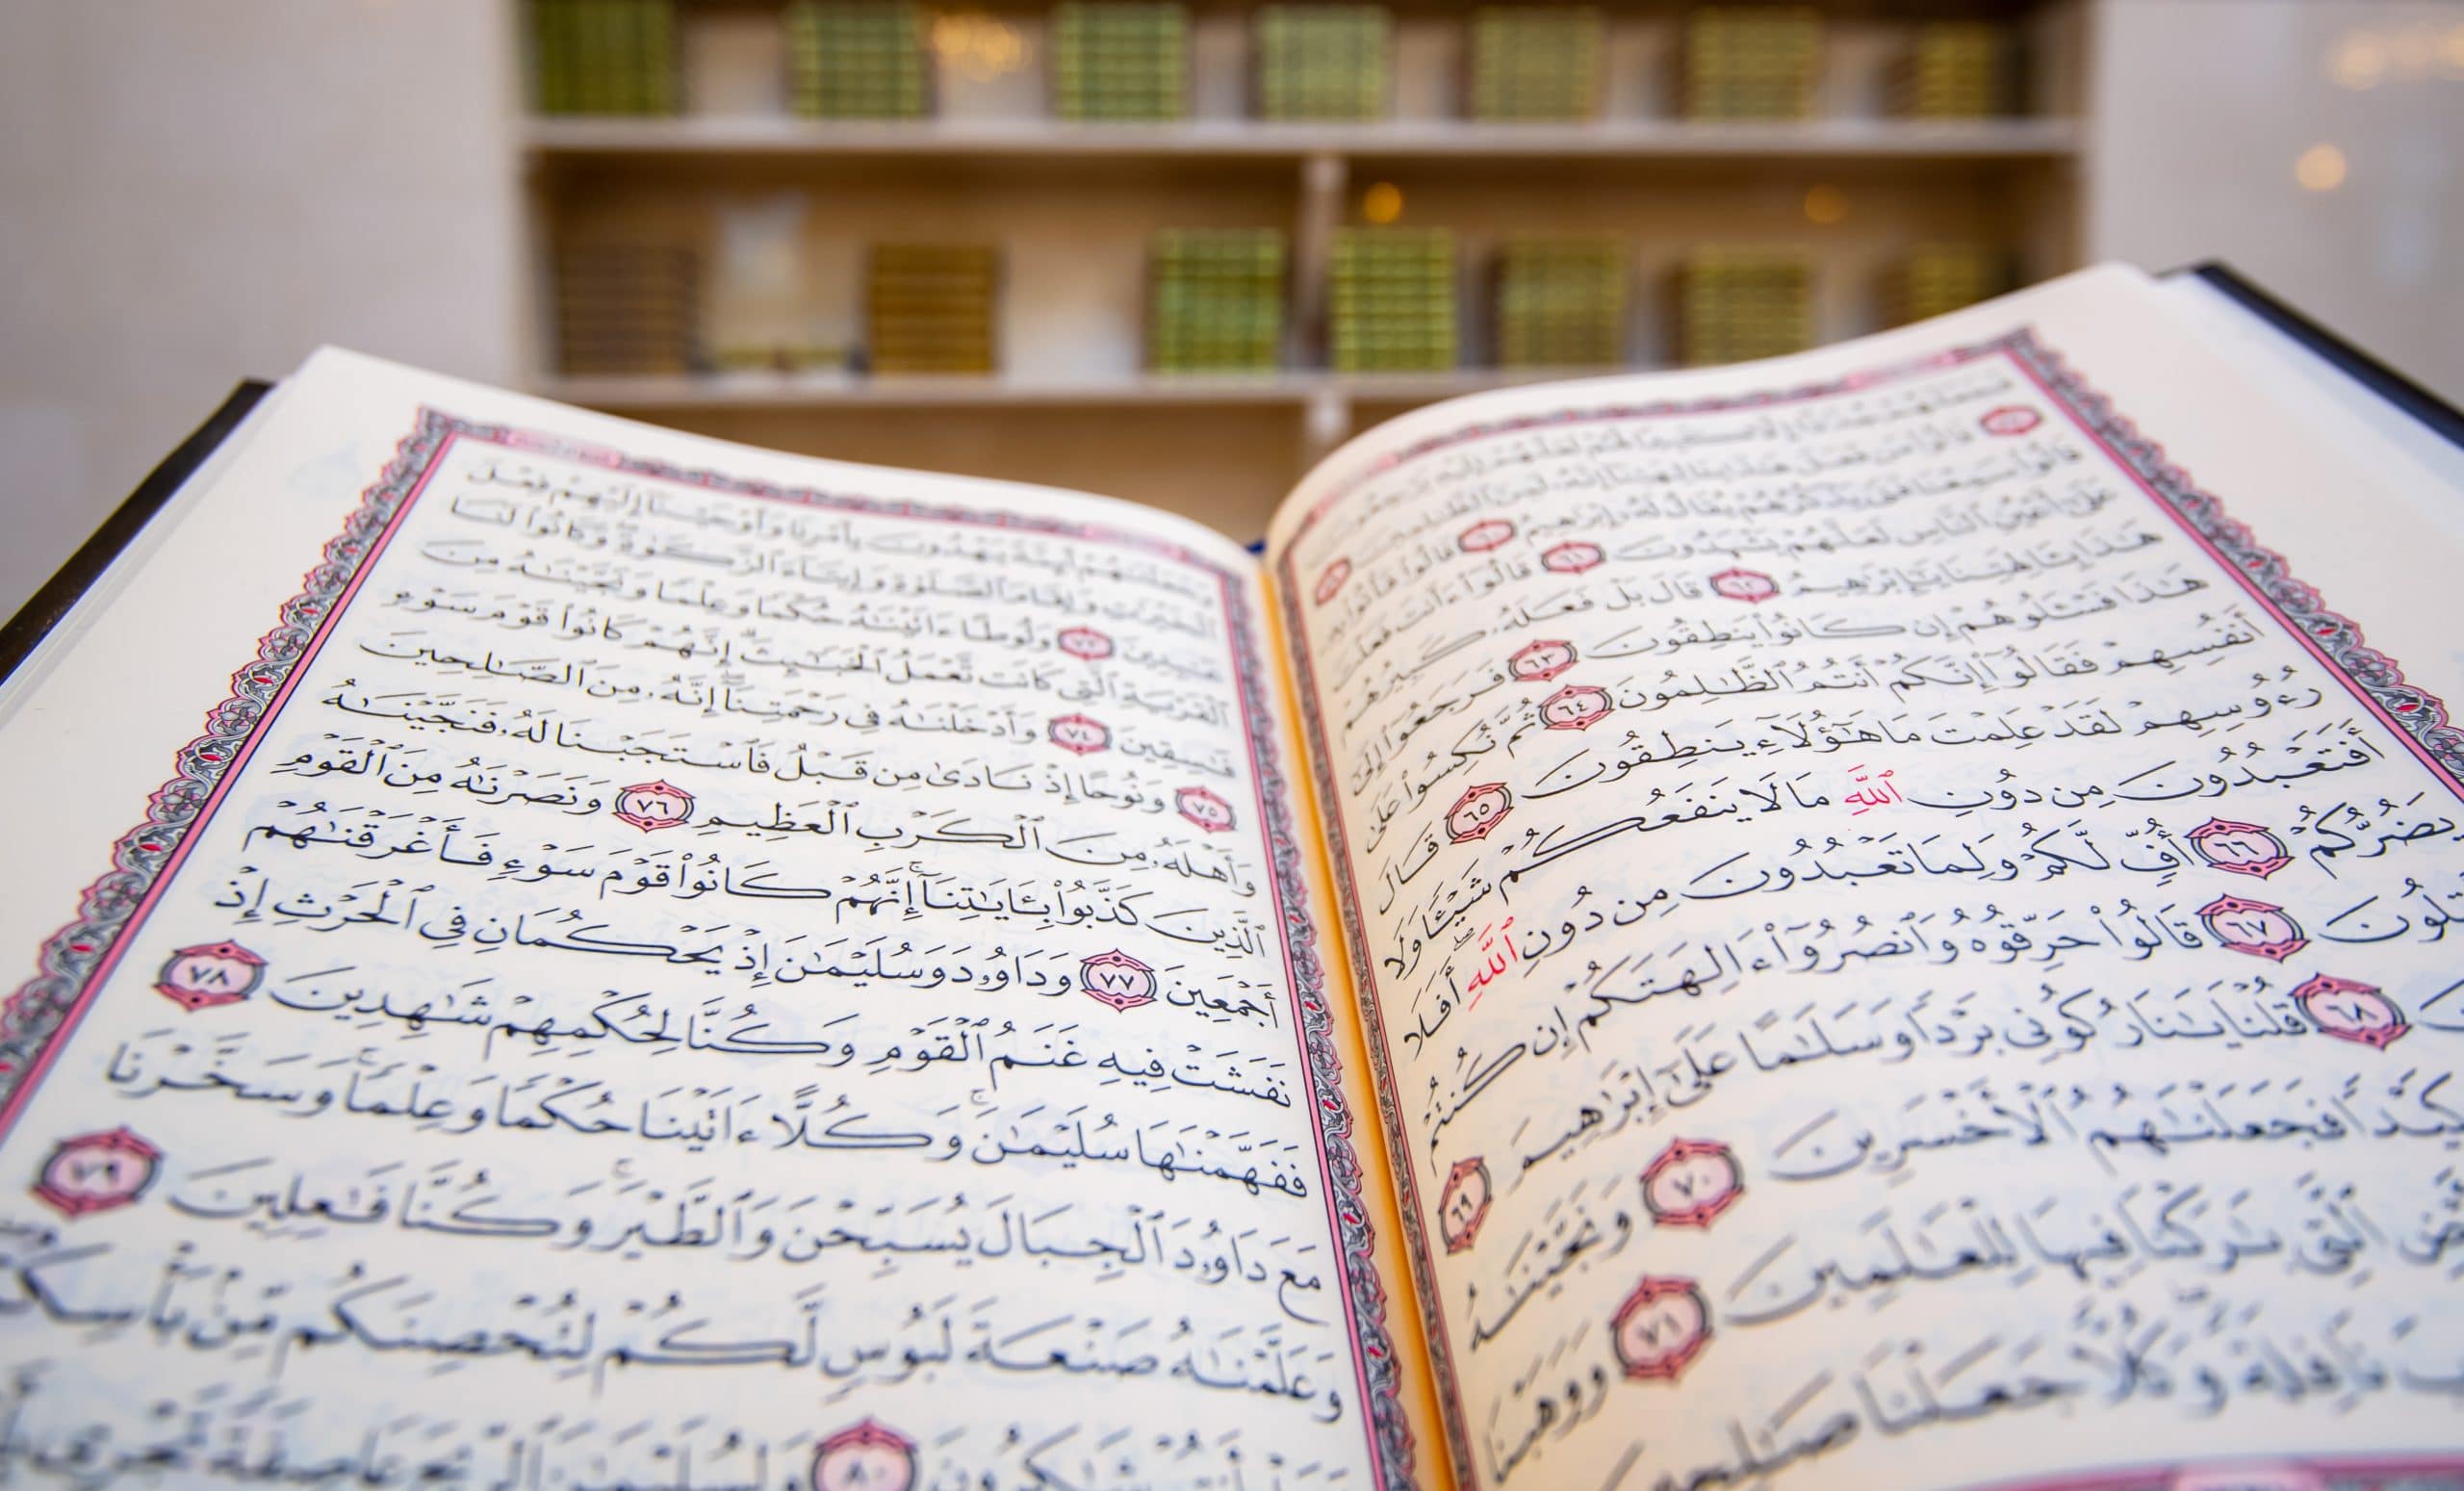 قَالُوا۟ مَن فَعَلَ هَٰذَا بِـَٔالِهَتِنَآ إِنَّهُۥ لَمِنَ ٱلظَّٰلِمِينَ
قَالُوا۟ سَمِعْنَا فَتًى يَذْكُرُهُمْ يُقَالُ لَهُۥٓ إِبْرَٰهِيمُ ٦٠ قَالُوا۟ فَأْتُوا۟ بِهِۦ
عَلَىٰٓ أَعْيُنِ ٱلنَّاسِ لَعَلَّهُمْ يَشْهَدُونَ ٦١ قَالُوٓا۟ ءَأَنتَ فَعَلْتَ
هَٰذَا بِـَٔالِهَتِنَا يَٰٓإِبْرَٰهِيمُ ٦٢ قَالَ بَلْ فَعَلَهُۥ كَبِيرُهُمْ
هَٰذَا فَسْـَٔلُوهُمْ إِن كَانُوا۟ يَنطِقُونَ ٦٣ فَرَجَعُوٓا۟ إِلَىٰٓ
أَنفُسِهِمْ فَقَالُوٓا۟ إِنَّكُمْ أَنتُمُ ٱلظَّٰلِمُونَ ٦٤ ثُمَّ نُكِسُوا۟ عَلَىٰ
رُءُوسِهِمْ لَقَدْ عَلِمْتَ مَا هَٰٓؤُلَآءِ يَنطِقُونَ ٦٥ قَالَ
أَفَتَعْبُدُونَ مِن دُونِ ٱللَّهِ مَا لَا يَنفَعُكُمْ شَيْـًٔا وَلَا
يَضُرُّكُمْ ٦٦ أُفٍّ لَّكُمْ وَلِمَا تَعْبُدُونَ مِن دُونِ ٱللَّهِ أَفَلَا
٦٧ قَالُوا۟ حَرِّقُوهُ وَٱنصُرُوٓا۟ ءَالِهَتَكُمْ إِن كُنتُمْ
٦٨ قُلْنَا يَٰنَارُ كُونِى بَرْدًا وَسَلَٰمًا عَلَىٰٓ إِبْرَٰهِيمَ ٦٩
كَيْدًا فَجَعَلْنَٰهُمُ ٱلْأَخْسَرِينَ ٧٠ وَنَجَّيْنَٰهُ
ٱلَّتِى بَٰرَكْنَا فِيهَا لِلْعَٰلَمِينَ ٧١ وَوَهَبْنَا
نَافِلَةً وَكُلًّا جَعَلْنَا صَٰلِحِينَ
وَجَعَلْنَٰهُمْ أَئِمَّةً يَهْدُونَ بِأَمْرِنَا وَأَوْحَيْنَآ إِلَيْهِمْ فِعْلَ
ٱلْخَيْرَٰتِ وَإِقَامَ ٱلصَّلَوٰةِ وَإِيتَآءَ ٱلزَّكَوٰةِ وَكَانُوا۟ لَنَا
عَٰبِدِينَ ٧٣ وَلُوطًا ءَاتَيْنَٰهُ حُكْمًا وَعِلْمًا وَنَجَّيْنَٰهُ مِنَ
ٱلْقَرْيَةِ ٱلَّتِى كَانَت تَّعْمَلُ ٱلْخَبَٰٓئِثَ إِنَّهُمْ كَانُوا۟ قَوْمَ سَوْءٍ
فَٰسِقِينَ ٧٤ وَأَدْخَلْنَٰهُ فِى رَحْمَتِنَآ إِنَّهُۥ مِنَ ٱلصَّٰلِحِينَ
٧٥ وَنُوحًا إِذْ نَادَىٰ مِن قَبْلُ فَٱسْتَجَبْنَا لَهُۥ فَنَجَّيْنَٰهُ
وَأَهْلَهُۥ مِنَ ٱلْكَرْبِ ٱلْعَظِيمِ ٧٦ وَنَصَرْنَٰهُ مِنَ ٱلْقَوْمِ
ٱلَّذِينَ كَذَّبُوا۟ بِـَٔايَٰتِنَآ إِنَّهُمْ كَانُوا۟ قَوْمَ سَوْءٍ فَأَغْرَقْنَٰهُمْ
أَجْمَعِينَ ٧٧ وَدَاوُۥدَ وَسُلَيْمَٰنَ إِذْ يَحْكُمَانِ فِى ٱلْحَرْثِ إِذْ
نَفَشَتْ فِيهِ غَنَمُ ٱلْقَوْمِ وَكُنَّا لِحُكْمِهِمْ شَٰهِدِينَ ٧٨
فَفَهَّمْنَٰهَا سُلَيْمَٰنَ وَكُلًّا ءَاتَيْنَا حُكْمًا وَعِلْمًا وَسَخَّرْنَا
مَعَ دَاوُۥدَ ٱلْجِبَالَ يُسَبِّحْنَ وَٱلطَّيْرَ وَكُنَّا فَٰعِلِينَ ٧٩
وَعَلَّمْنَٰهُ صَنْعَةَ لَبُوسٍ لَّكُمْ لِتُحْصِنَكُم مِّنۢ بَأْسِكُمْ
شَٰكِرُونَ ٨٠ وَلِسُلَيْمَٰنَ ٱلرِّيحَ عَاصِفَةً تَجْرِى